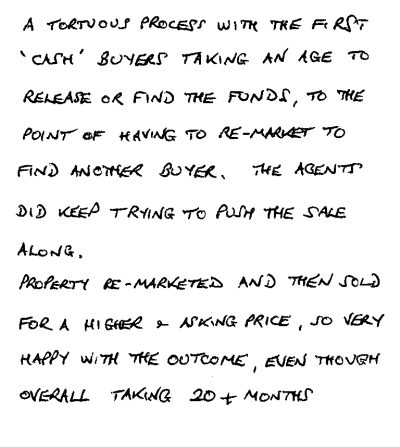 A TORTUOUS PROCESS WITH THE FIRST
'CASH' BUYERS TAKING AN AGE TO
RELEASE OR FIND THE FUNDS, TO THE
POINT OF HAVING TO RE-MARKET TO
FIND ANOTHER BUYER. THE AGENTS
DID KEEP TRYING TO PUSH THE SALE
ALONG.
PROPERTY RE-MARKETED AND THEN SOLD
FOR A HIGHER & ASKING PRICE, SO VERY
HAPPY WITH THE OUTCOME, EVEN THOUGH
OVERALL TAKING 20+ MONTHS